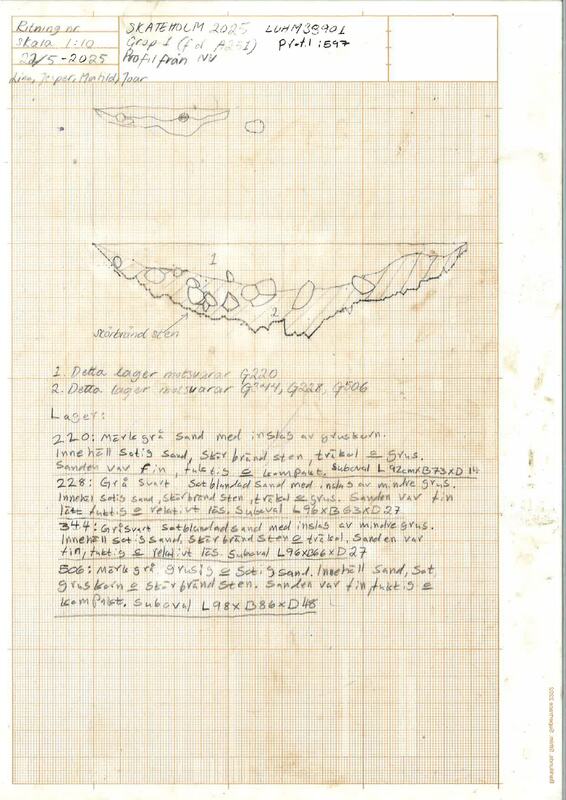 Ritning nr
Skala 1:10
22/5-2025
Lina, Jesper, Mathild, Joar
SKATEHOLM 2025 LUHM38901
Grop 1 (f.d. A251)
Profil från NV
1
2
skörbränd sten
1. Detta lager motsvarar G220
2. Detta lager motsvarar G344, G228, G506
Lager:
220: Mörk grå sand med inslag av gruskorn.
Innehöll sotig sand, skörbränd sten, träkol & grus.
Sanden var fin, fuktig & kompakt. Suboval L 92cm×B73×D 14
228: Grå svart sotblandad sand med inslag av mindre grus.
Innehöl sotig sand, skörbränd sten, träkol & grus. Sanden var fin
fuktig & relativt lös. Suboval L96×B63×D27
344: Gråsvart Sotblandad sand med inslag av mindre grus.
Innehöll sotig sand, skörbränd sten & träkol. Sanden var
fin, fuktig & relativt lös. Suboval L96×B66×D27
506: Mörk grå, grusig & sotig sand. Innehöll sand, sot
gruskorn & skörbränd sten. Sanden var fin fuktig &
kompakt. Suboval L98×B86×D48